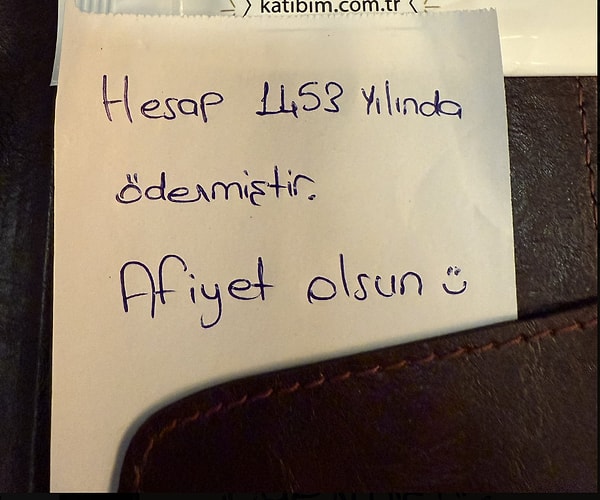 katibim.com.tr
Hesap 1453 Yılında
ödenmiştir.
Afiyet olsun